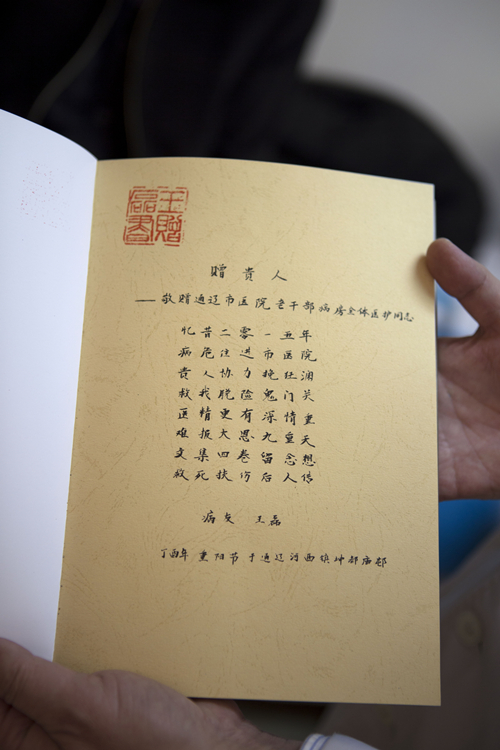 王磊
贈書
贈貴人
——敬赠通辽市医院老干部病房全体医护同志
忆昔二零一五年
病危住进市医院
貴人协力挽狂澜
救我脱险鬼门关
医精更有深情重
难报大恩九重天
文集四卷留念想
救死扶伤后人传
病友 王磊
丁酉年 重阳节 于通辽河西镇坤都庙邨